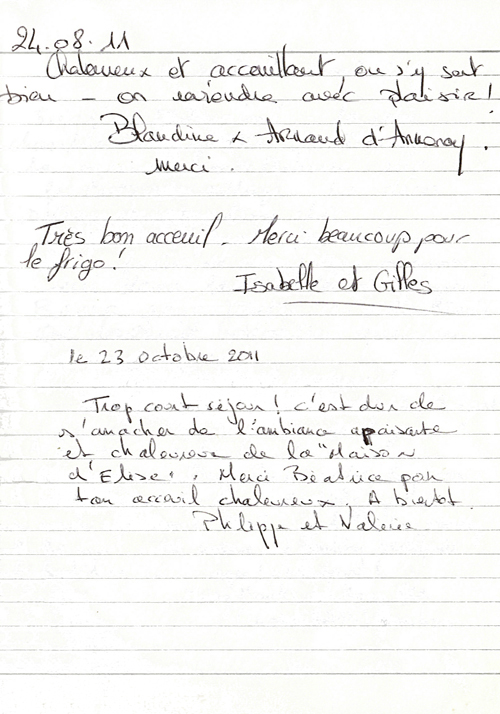 24.08.11
Chaleureux et acceuillant, on s'y sent
bien - on reviendra avec plaisir!
Blandine & Arnaud d'Annonay.
Merci.
Très bon acceuil. Merci beaucoup pour
le frigo!
Isabelle et Gilles
le 23 octobre 2011
Trop court séjour! c'est dur de
s'arracher de l'ambiance apaisante
et chaleureuse de la "Maison
d'Elise". Merci Béatrice pour
ton accueil chaleureux. A bientot.
Philippe et Valérie